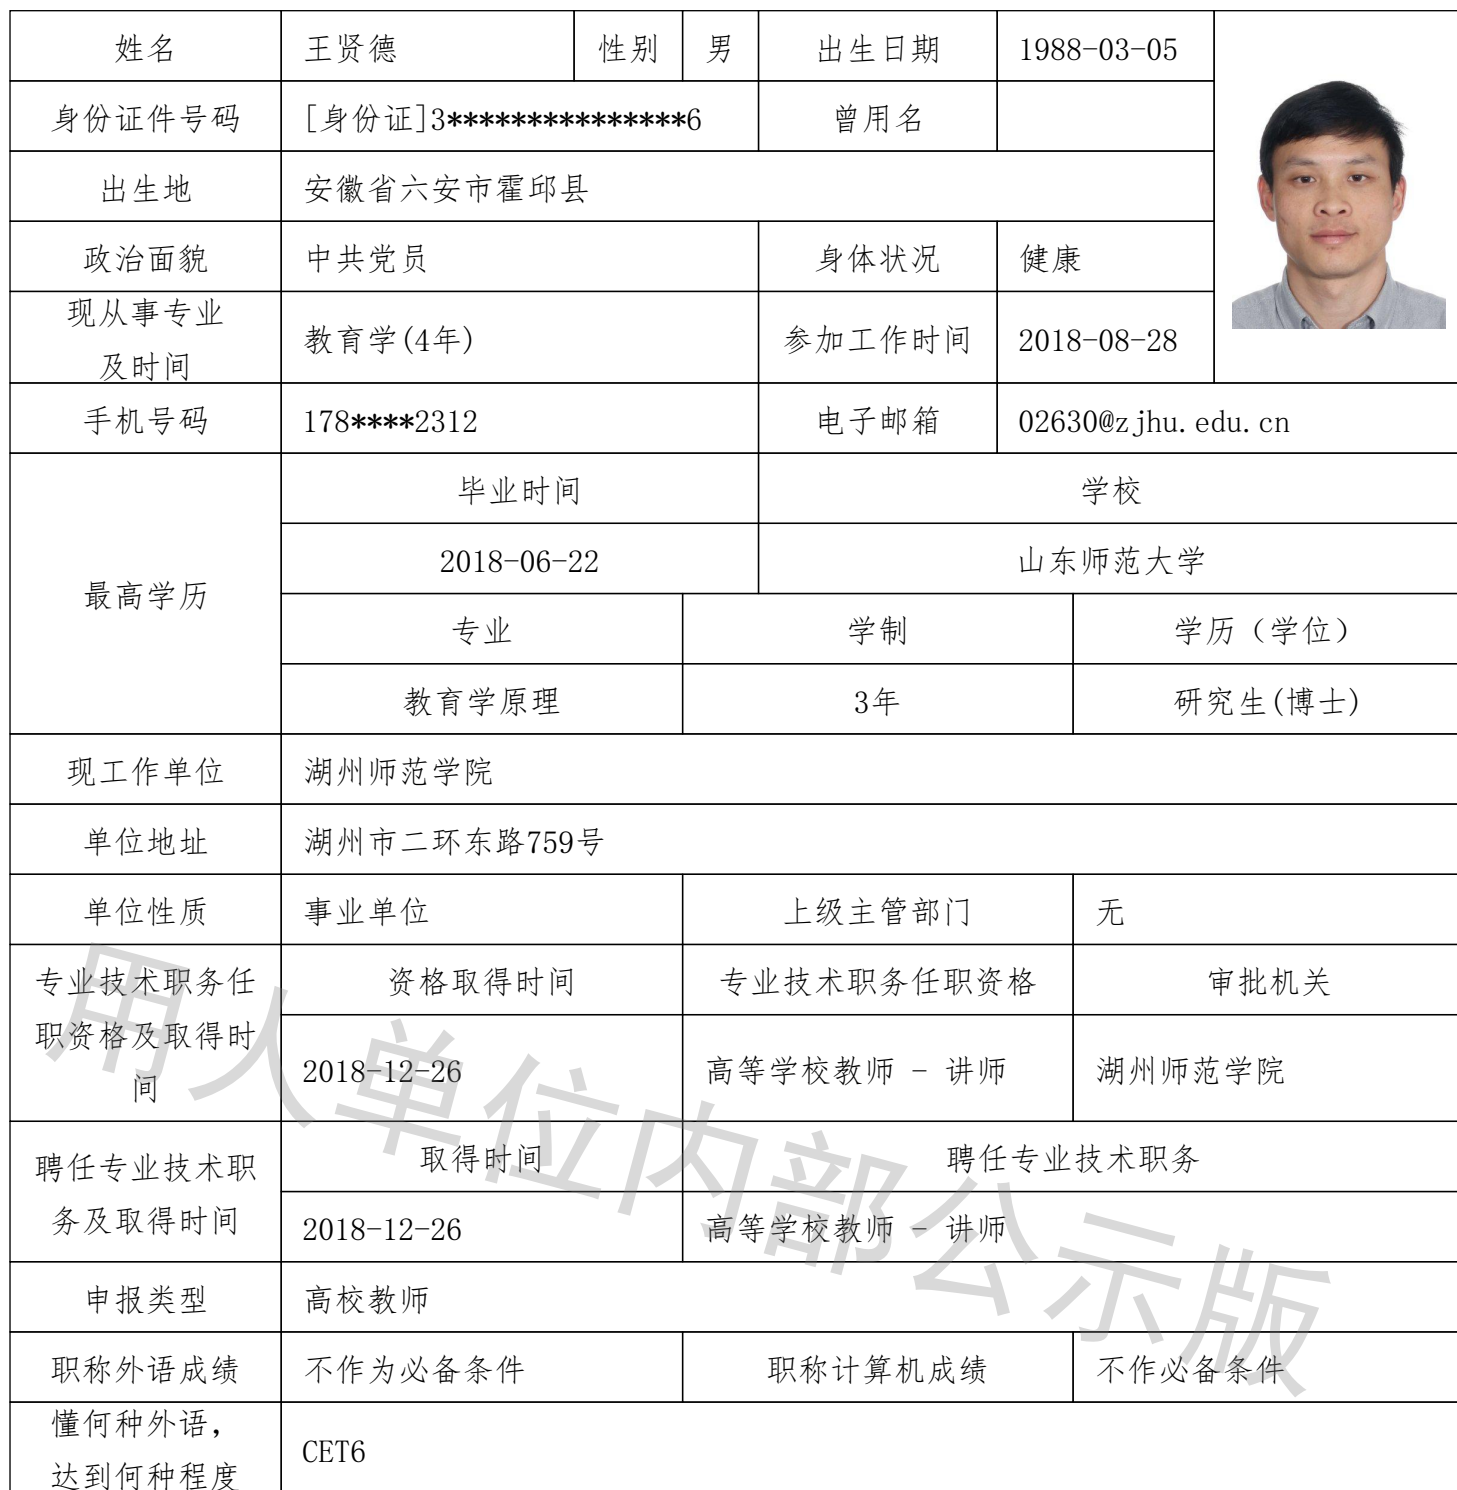 姓名 王贤德 性别 男 出生日期 1988-03-05
身份证件号码 [身份证]3***************6 曾用名
出生地 安徽省六安市霍邱县
政治面貌 中共党员 身体状况 健康
现从事专业
及时间 教育学(4年) 参加工作时间 2018-08-28
手机号码 178****2312 电子邮箱 02630@zjhu.edu.cn
最高学历
毕业时间 学校
2018-06-22 山东师范大学
专业 学制 学历（学位）
教育学原理 3年 研究生(博士)
现工作单位 湖州师范学院
单位地址 湖州市二环东路759号
单位性质 事业单位 上级主管部门 无
专业技术职务任
职资格及取得时
间
资格取得时间 专业技术职务任职资格 审批机关
2018-12-26 高等学校教师 - 讲师 湖州师范学院
聘任专业技术职
务及取得时间
取得时间 聘任专业技术职务
2018-12-26 高等学校教师 - 讲师
申报类型 高校教师
职称外语成绩 不作为必备条件 职称计算机成绩 不作必备条件
懂何种外语，
达到何种程度 CET6
用人单位内部公示版